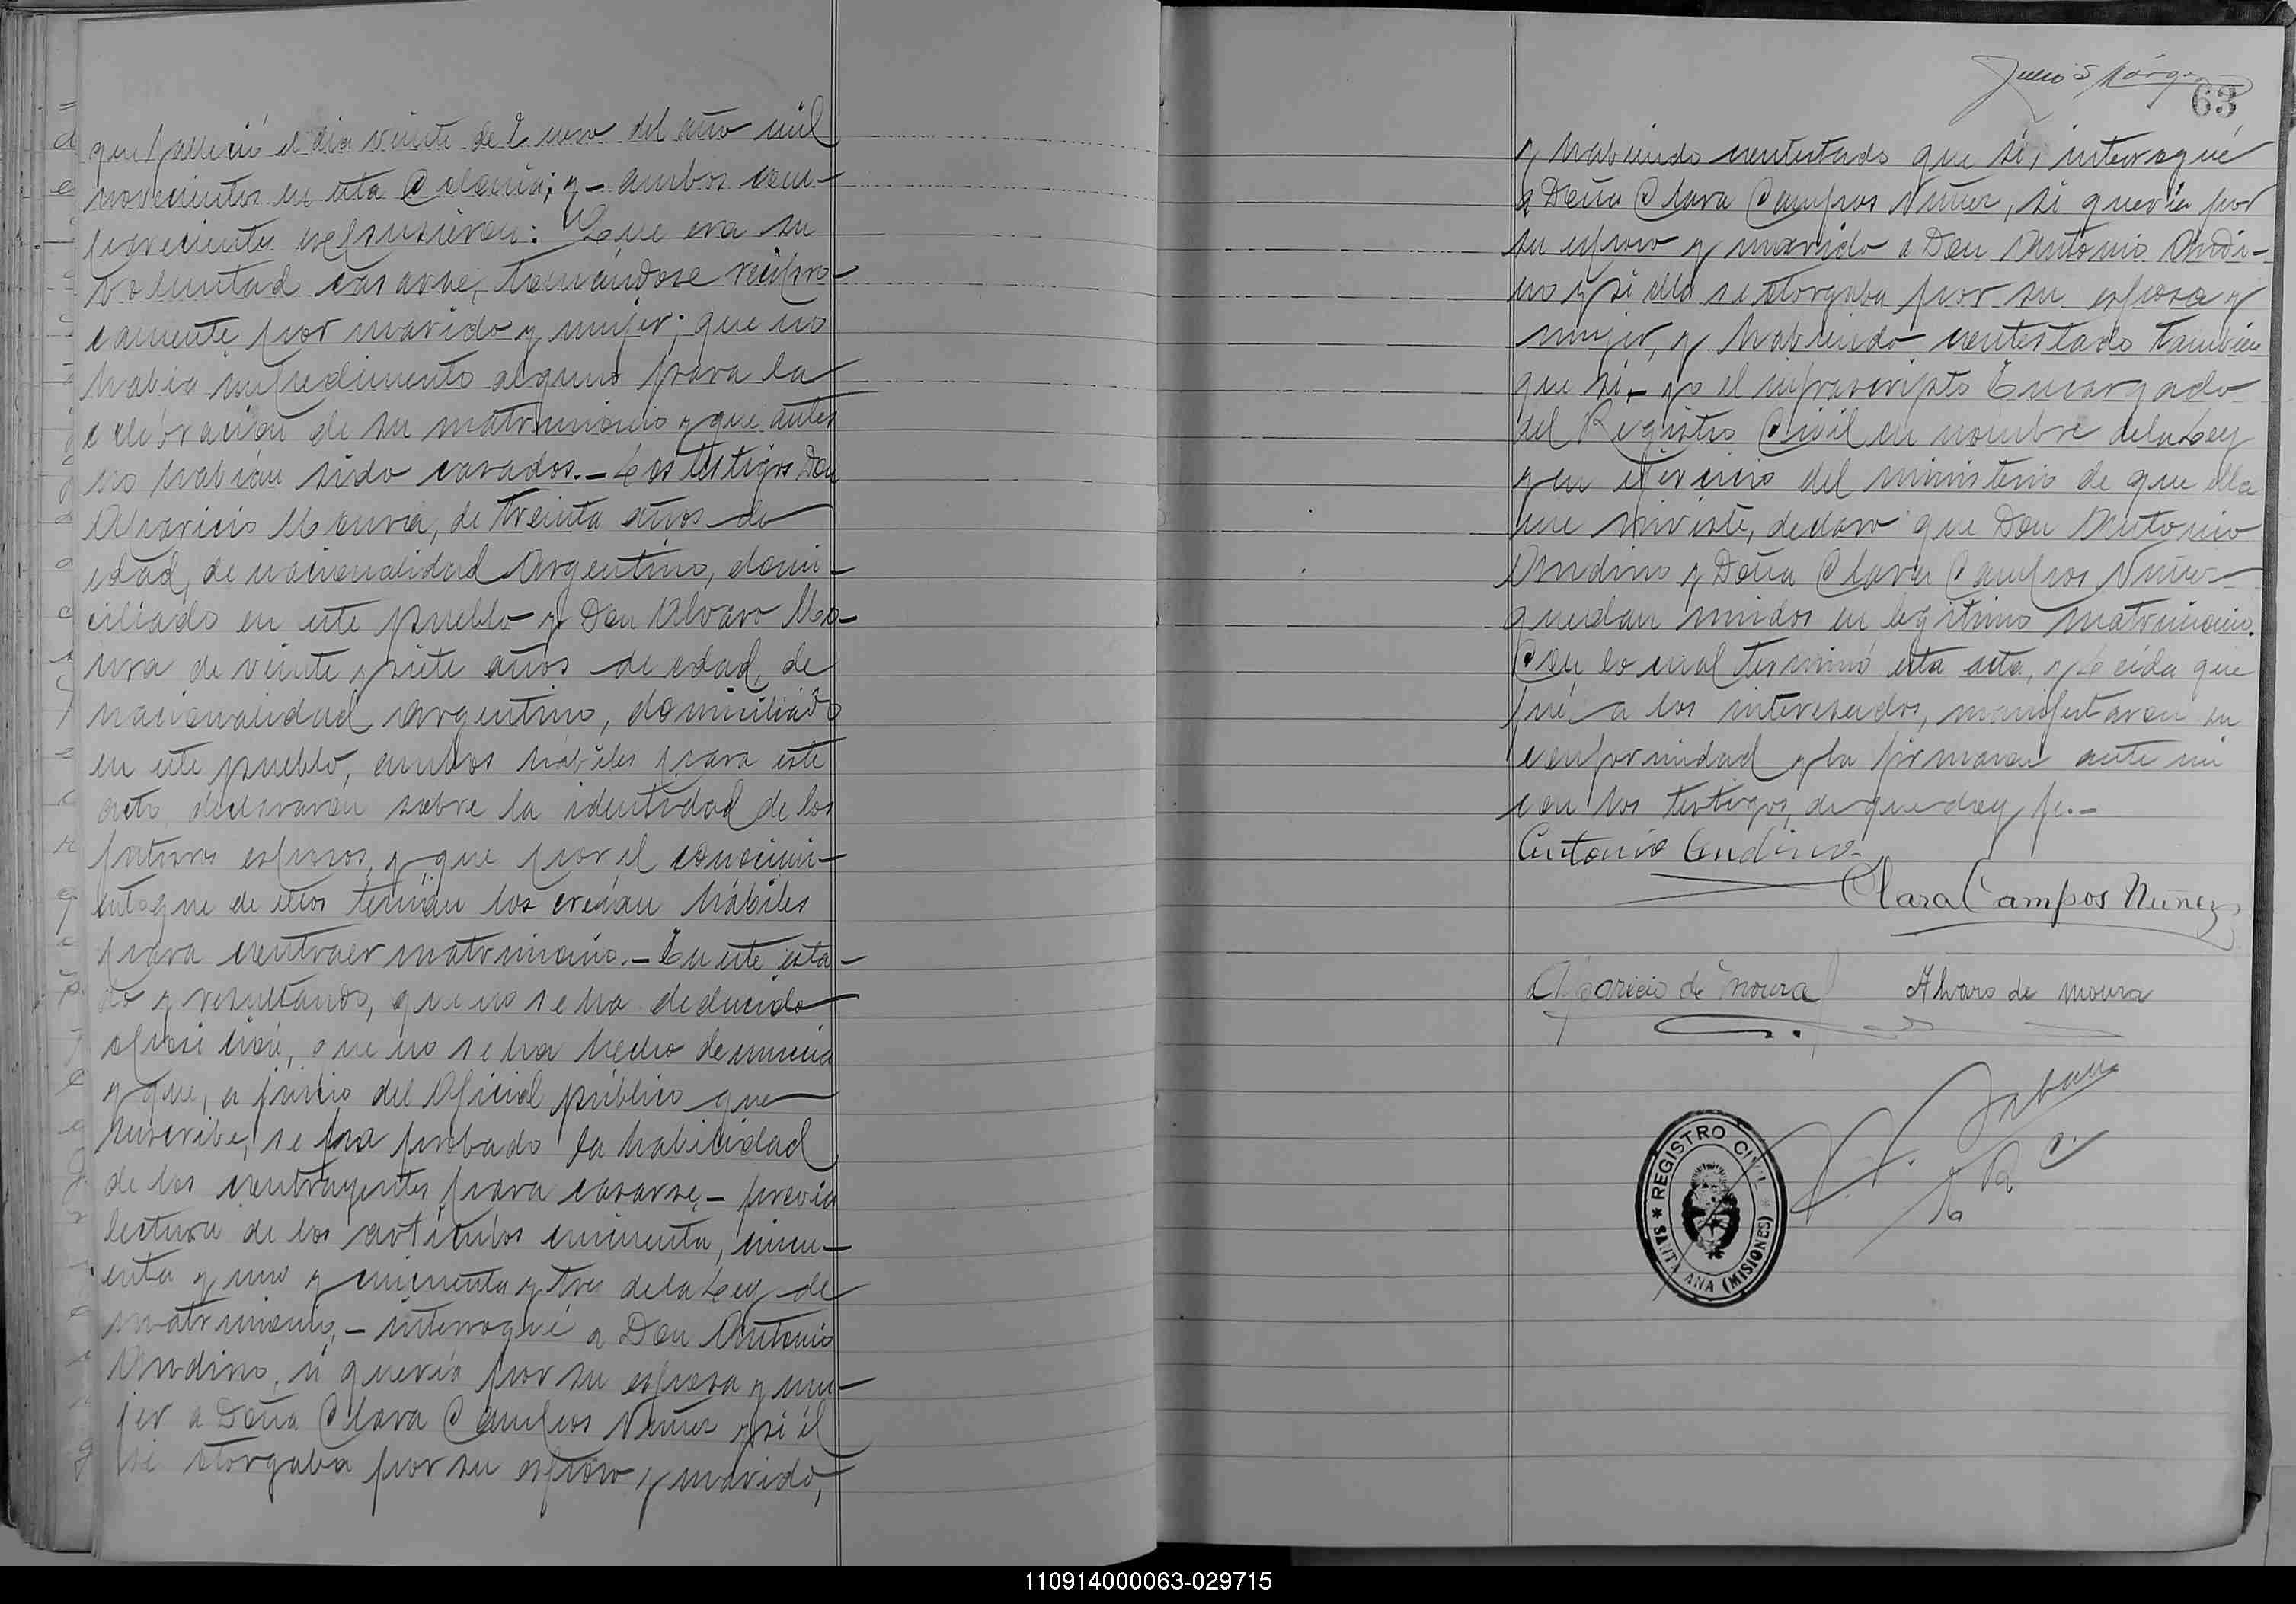 que falleció el dia veinte de Enero del año mil
novecientos en esta Colonia; y - ambos com-
parecientes expusieron: Que era su
voluntad casarse, tomándose recipro-
camente por marido y mujer; que no
habia impedimento alguno para la
celebración de su matrimonio y que antes
no habian sido casados.- Los testigos Don
Aparicio Moura, de treinta años de
edad, de nacionalidad Argentino, domi-
ciliado en este pueblo y Don Alvaro Mo-
ura de veinte y siete años de edad, de
nacionalidad argentino, domiciliado
en este pueblo, ambos hábiles para este
acto declararón sobre la identidad de los
futuros esposos, y que por el conocimi-
ento que de ellos tenián los creián hábiles
para contraer matrimonio.- En este esta-
do y resultando, que no se ha deducido
oposición, que no se ha hecho denuncia
y que, a juicio del Oficial público que
suscribe, se ha probado la habilidad
de los contrayentes para casarse,- previa
lectura de los articulos cincuenta, cincu-
enta y uno y cincuenta y tres de la Ley de
matrimonio,- interrogué a Don Antonio
Andino, si queria por su esposa y mu-
jer a Doña Clara Campos Nuñez y si él
se otorgaba por su esposo y marido,
63
y habiendo contestado que sí, interrogué
a Doña Clara Campos Nuñez, si queria por
su esposo y marido a Don Antonio Andi-
no y si ella se otorgaba por su esposa y
mujer, y habiendo contestado tambien
que si,- yo el infrascripto Encargado
del Registro Civil en nombre de la Ley
y en ejercicio del ministerio de que ella
me inviste, declaro que Don Antonio
Andino y Doña Clara Campos Nuñez
quedan unidos en legitimo matrimonio.
Con lo cual terminó esta acta, y Leida que
fué a los interesados, manifestaron su
conformidad y la firmaron ante mi
con los testigos, de que doy fe.-
Antonio Andino
Clara Campos Nuñez
Aparicio de Moura Alvaro de Moura
REGISTRO CIVIL
SANTA ANA (MISIONES)
110914000063-029715